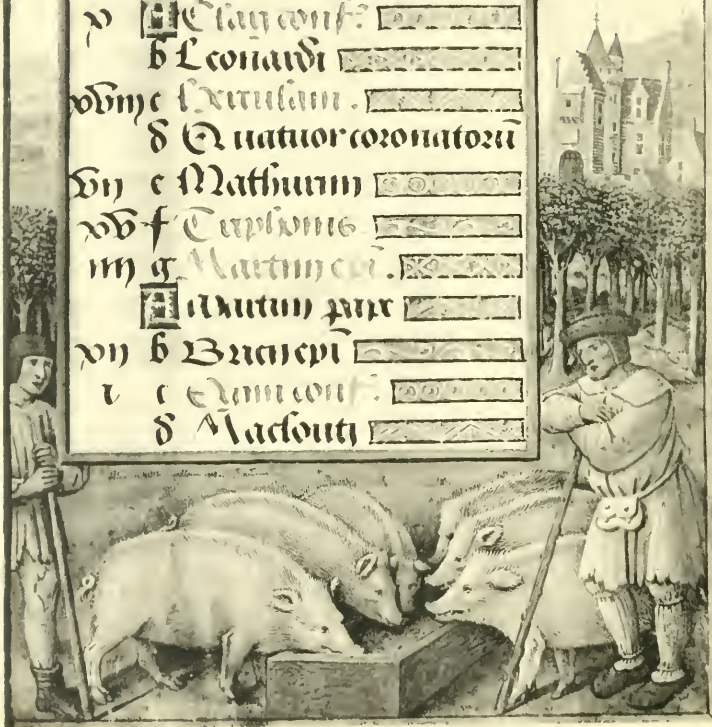 A Clari conf.
b Leonardi
xviij c
d Quatuor coronatorũ
vij e Mathurini
xv f
iiij g Martini epĩ.
A Martini pape
xij b Bricij epĩ
i c conf.
d Maclouij